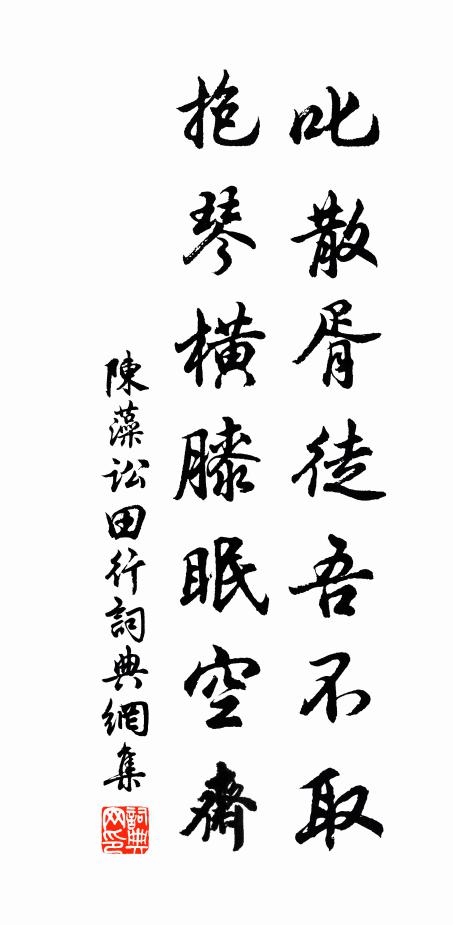 叱散胥徒吾不取
抱琴橫膝眠空齋
陳藻訟田行詞典網集
詞典網印